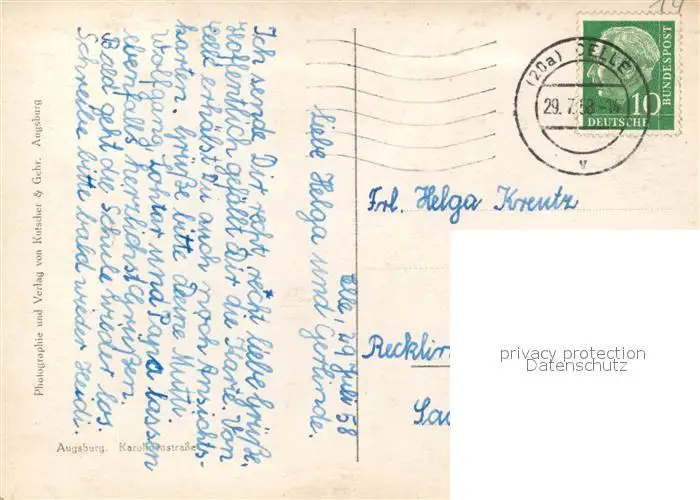 Celle, 29 Juli 58
Liebe Helga und Gerlinde.
Ich sende Dir recht, recht liebe Grüße.
Hoffentlich gefällt Dir die Karte. Von
Celle erhälst Du auch noch Ansichts-
karten. Grüße bitte Deine Mutti
Wolfgang, und Papa lassen
ebenfalls herzlichst Grüßen.
Bald geht die Schule wieder los.
Schreibe bitte bald wieder Heidi.
Frl. Helga Kreutz
Photographie und Verlag von Kutscher & Gehr. Augsburg
Augsburg. Karolinenstraße
(20a) CELLE
29. 7. 58
v
10
DEUTSCHE
BUNDESPOST
14
privacy protection
Datenschutz